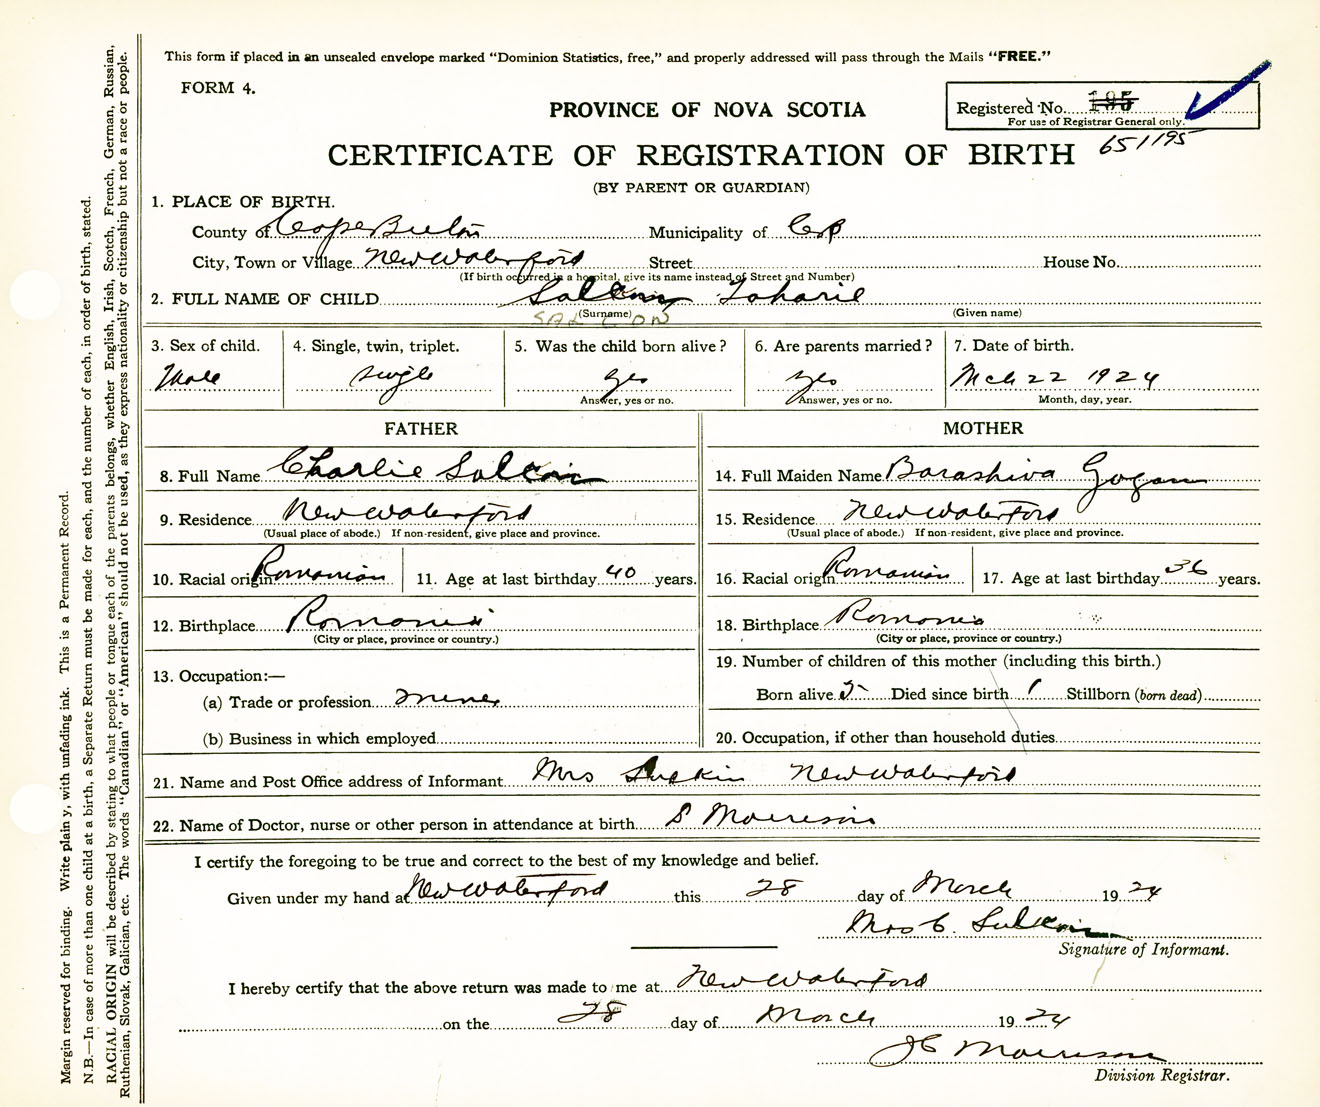 This form if placed in an unsealed envelope marked "Dominion Statistics, free," and properly addressed will pass through the Mails "FREE."
FORM 4.
PROVINCE OF NOVA SCOTIA
Registered No. 195
For use of Registrar General only.
651195
CERTIFICATE OF REGISTRATION OF BIRTH
(BY PARENT OR GUARDIAN)
1. PLACE OF BIRTH.
County of Cape Breton Municipality of C B
City, Town or Village New Waterford Street House No.
(If birth occurred in a hospital, give its name instead of Street and Number)
2. FULL NAME OF CHILD Zaharie
(Surname) (Given name)
3. Sex of child. 4. Single, twin, triplet. 5. Was the child born alive? 6. Are parents married? 7. Date of birth.
Male single yes yes Mch 22 1924
Answer, yes or no. Answer, yes or no. Month, day, year.
FATHER MOTHER
8. Full Name Charlie 14. Full Maiden Name Barashiva Gogan
9. Residence New Waterford 15. Residence New Waterford
(Usual place of abode.) If non-resident, give place and province. (Usual place of abode.) If non-resident, give place and province.
10. Racial origin Romanian 11. Age at last birthday 40 years. 16. Racial origin Romanian 17. Age at last birthday 36 years.
12. Birthplace Romania 18. Birthplace Romania
(City or place, province or country.) (City or place, province or country.)
13. Occupation:— 19. Number of children of this mother (including this birth.)
(a) Trade or profession miner Born alive 5 Died since birth 1 Stillborn (born dead)
(b) Business in which employed 20. Occupation, if other than household duties
21. Name and Post Office address of Informant Mrs New Waterford
22. Name of Doctor, nurse or other person in attendance at birth S Morrison
I certify the foregoing to be true and correct to the best of my knowledge and belief.
Given under my hand at New Waterford this 28 day of March 1924
Mrs C.
Signature of Informant.
I hereby certify that the above return was made to me at New Waterford
on the 28 day of March 1924
J C Morrison
Division Registrar.
Margin reserved for binding. Write plain y, with unfading ink. This is a Permanent Record.
N.B.—In case of more than one child at a birth, a Separate Return must be made for each, and the number of each, in order of birth, stated.
RACIAL ORIGIN will be described by stating to what people or tongue each of the parents belongs, whether English, Irish, Scotch, French, German, Russian,
Ruthenian, Slovak, Galician, etc. The words "Canadian" or "American" should not be used, as they express nationality or citizenship but not a race or people.